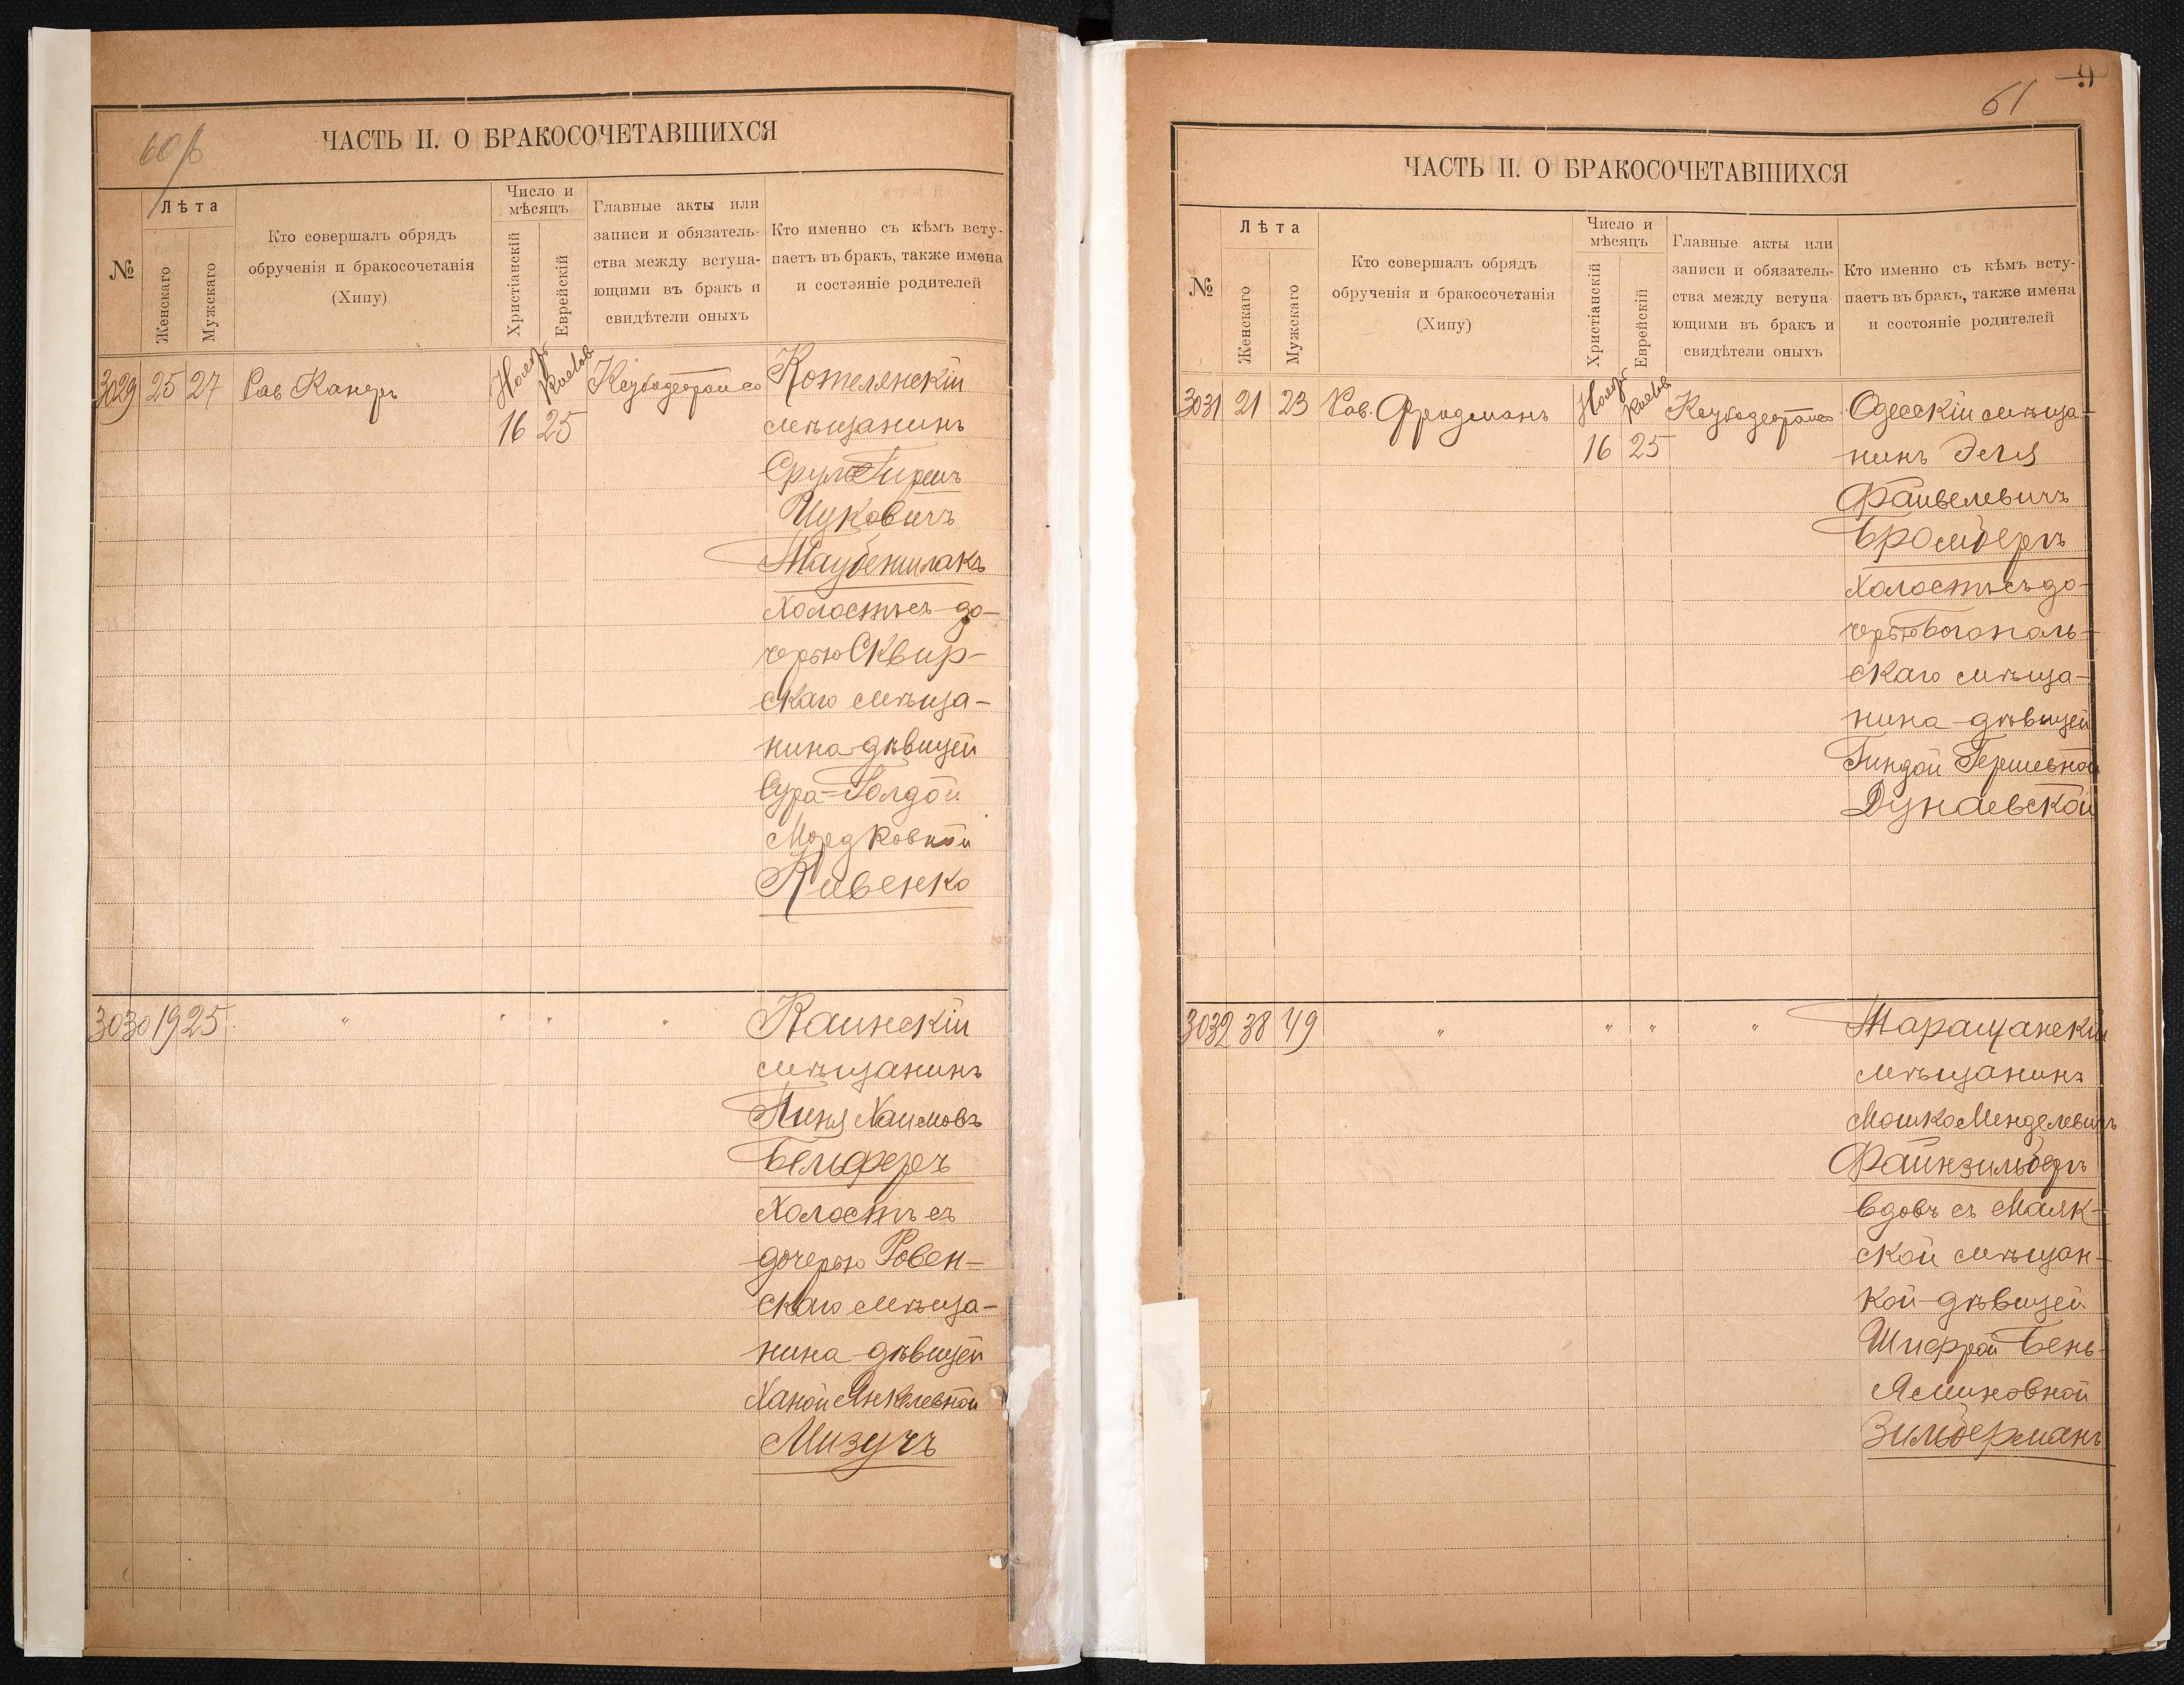 60 об
ЧАСТЬ II. О БРАКОСОЧЕТАВШИХСЯ
№
Лѣта
Женскаго
Мужскаго
Кто совершалъ обрядъ
обрученія и бракосочетанія
(Хипу)
Число и
мѣсяцъ
Христіанскій
Еврейскій
Главные акты или
записи и обязатель-
ства между вступа-
ющими въ бракъ и
свидѣтели оныхъ
Кто именно съ кѣмъ всту-
паетъ въ бракъ, также имена
и состояніе родителей
3029 25 27 Рав Канеръ
16 25
Котелянскій
мѣщанинъ
Сруль Гиршъ
Ицковичъ
Таубеншлакъ
Холостъ съ до-
черью Сквир-
скаго мѣща-
нина дѣвицей
Сура-Голдой
Мордковной
Кивенко
3030 19 25 " " " "
Каинскій
мѣщанинъ
Пиня Хаимовъ
Бельферъ
Холостъ съ
дочерью Ровен-
скаго мѣща-
нина дѣвицей
Ханой Янкелевной
Мизучъ
61
ЧАСТЬ II. О БРАКОСОЧЕТАВШИХСЯ
№
Лѣта
Женскаго
Мужскаго
Кто совершалъ обрядъ
обрученія и бракосочетанія
(Хипу)
Число и
мѣсяцъ
Христіанскій
Еврейскій
Главные акты или
записи и обязатель-
ства между вступа
ющими въ бракъ и
свидѣтели оныхъ
Кто именно съ кѣмъ всту-
паетъ въ бракъ, также имена
и состояніе родителей
3031 21 23 Рав. Фридманъ
16 25
Одесскій мѣща-
нинъ Эля
Файвелевичъ
Бромбергъ
Холостъ съ до-
черью Богополь-
скаго мѣща-
нина дѣвицей
Гиндой Гершевной
Дунаевской
3032 38 49 " " " "
Таращанскій
мѣщанинъ
Мошко Менделевичъ
Файнзильбергъ
вдовъ съ Маяк-
ской мѣщан-
кой дѣвицей
Шифрой Бень-
Яминовной
Зильберманъ